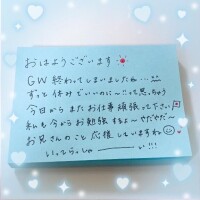 おはようございます☀
GW 終わってしまいましたね…
ずっと休みでいいのに〜!!って思っちゃう
今日から またお仕事 頑張って下さい
私も 今から お勉強 すもよ〜 やだやだ〜
お兄さんのこと 応援していますね☺
いってらっしゃーーーい!!!